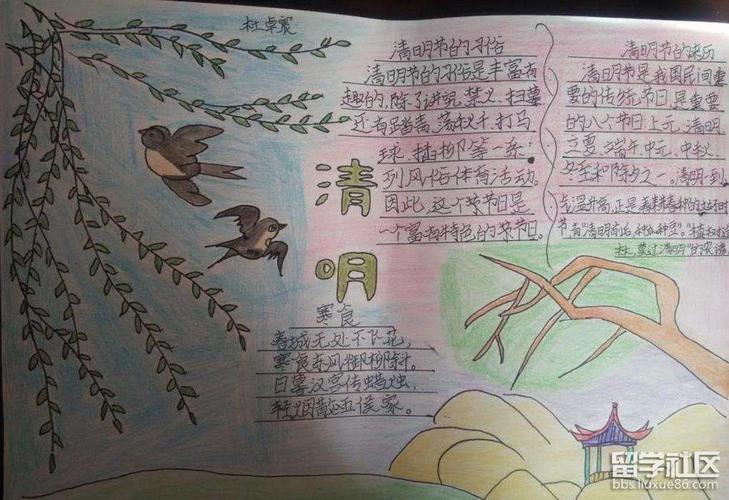 杜卓宸
清明节的习俗
清明节的习俗是丰富有
趣的,除了讲究禁火、扫墓,
还有踏青、荡秋千、打马
球、插柳等一系
列风俗体育活动。
因此,这个节日是
一个富有特色的节日。
清明节的来历
清明节是我国民间重
要的传统节日,是重要
的八个节日上元、清明
立夏、端午、中元、中秋、
冬至和除夕之一。清明一到,
气温升高,正是春耕春种的大好时
节,有"清明前后,种瓜种豆"。"植树造
林,莫过清明"的农谚
清明
寒食
春城无处不飞花,
寒食东风御柳斜。
日暮汉宫传蜡烛,
轻烟散五侯家。
留学社区
bbs.liuxue86.com